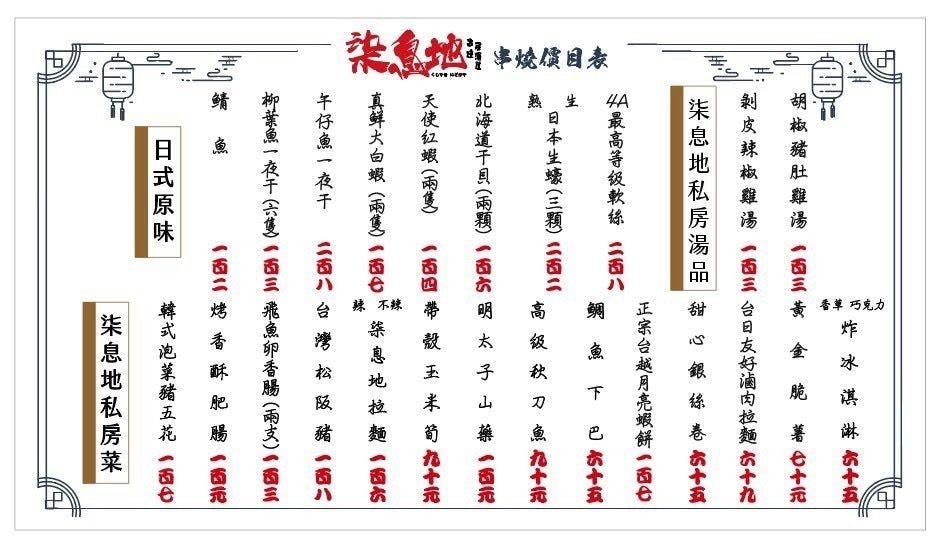 柒息地
串燒
居酒屋
串燒價目表
胡椒豬肚雞湯 一百三
剝皮辣椒雞湯 一百三
柒息地私房湯品
4A最高等級軟絲 二百八
生 熟
日本生蠔(三顆) 二百二
北海道干貝(兩顆) 一百六
天使紅蝦(兩隻) 一百四
真鮮大白蝦(兩隻) 一百七
午仔魚一夜干 二百八
柳葉魚一夜干(六隻) 一百三
鯖魚 一百二
日式原味
香草 巧克力
炸冰淇淋 六十五
黃金脆薯 七十元
台日友好滷肉拉麵 六十九
甜心銀絲卷 六十五
正宗台越月亮蝦餅 一百七
鯛魚下巴 六十五
高級秋刀魚 九十元
明太子山藥 一百元
帶殼玉米筍 九十元
辣 不辣
柒息地拉麵 一百六
台灣松阪豬 一百八
飛魚卵香腸(兩支) 一百三
烤香酥肥腸 一百元
韓式泡菜豬五花 一百七
柒息地私房菜